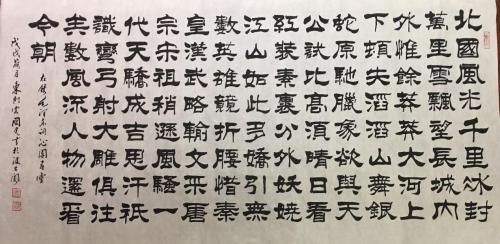 北國風光千里冰封
萬里雪飄望長城内
外惟餘莽莽大河上
下頓失滔滔山舞銀
蛇原馳臘象欲與天
公試比高須晴日看
紅裝素裹分外妖嬈
江山如此多嬌引無
數英雄競折腰惜秦
皇漢武略輸文采唐
宗宋祖稍遜風騷一
代天驕成吉思汗祇
識彎弓射大雕俱往
矣數風流人物還看
今朝
右錄毛澤東詞沁園春雪
戊戌